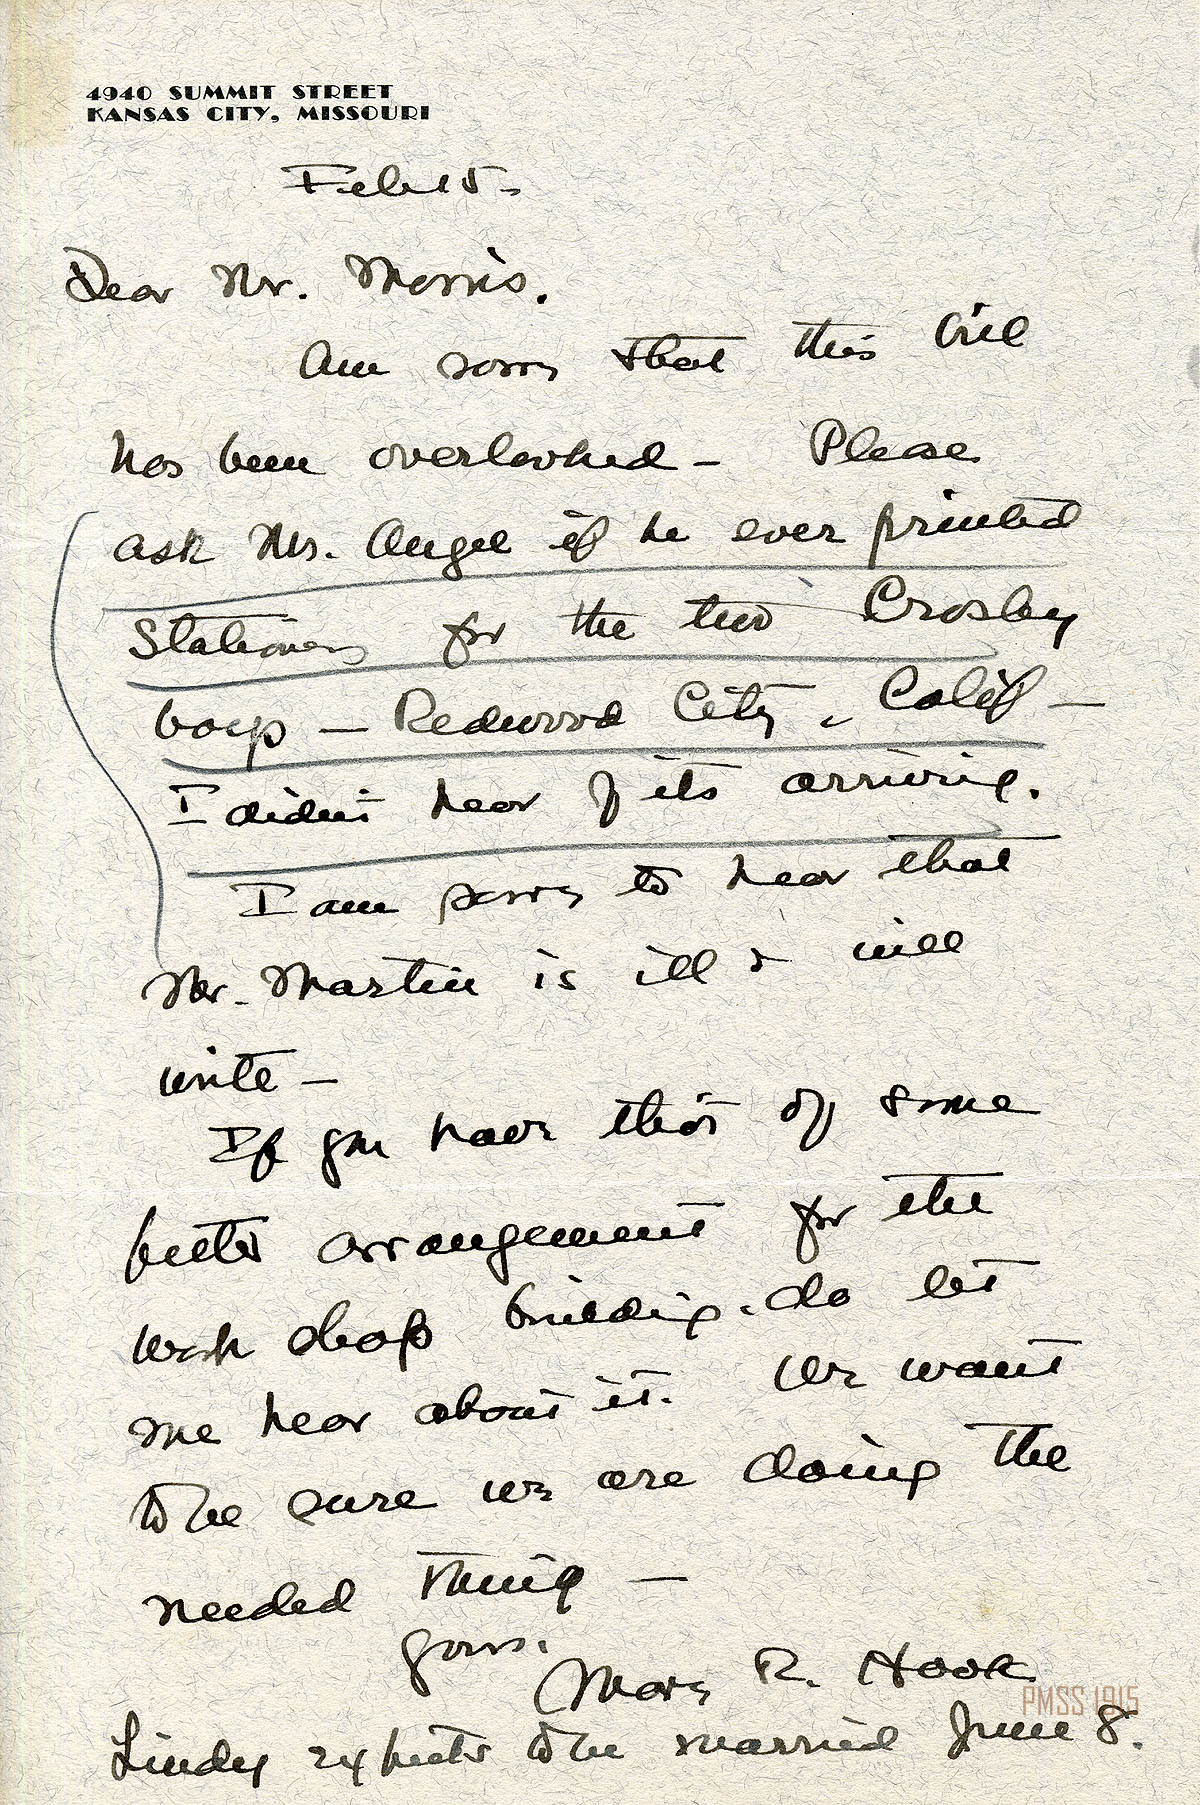 4940 SUMMIT STREET
KANSAS CITY, MISSOURI
Feb 15.
Dear Mr. Morris.
Am sorry that this bill
has been overlooked – Please
ask Mr. Angel if he ever printed
Stationery for the two Crosby
boys – Redwood City, Calif –
I didn't hear of its arriving.
I am sorry to hear that
Mr. Martin is ill & will
write –
If you have thot of some
better arrangement for the
work shop building. do let
me hear about it. We want
to be sure we are doing the
needed thing –
Yours.
Mary R. Hook
PMSS 1915
Lindy expects to be married June 8.